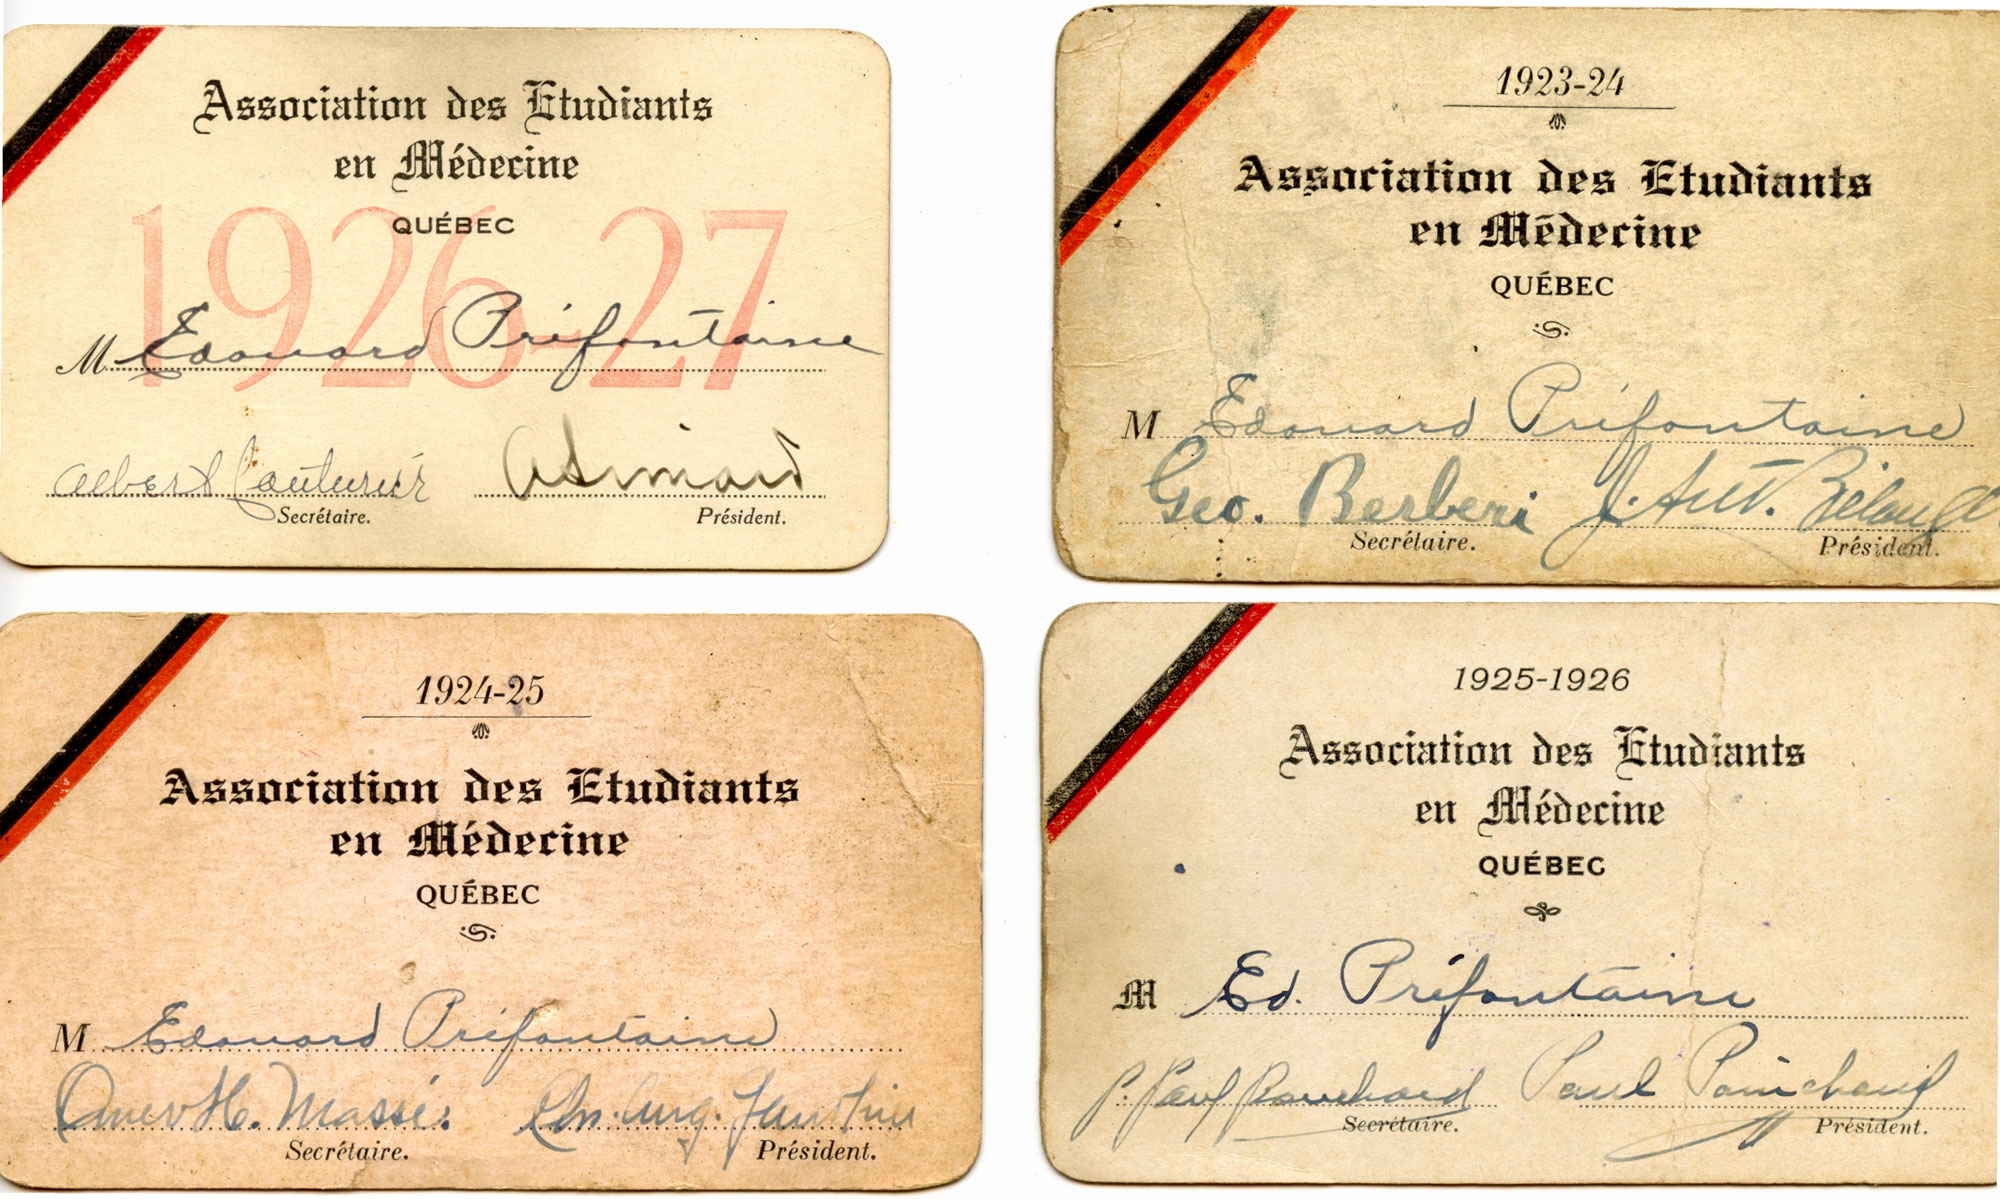 Association des Etudiants
en Médecine
QUÉBEC
1926-27
M Edouard Préfontaine
Albert Couturier
ASimard
Secrétaire.
Président.
1923-24
Association des Etudiants
en Médecine
QUÉBEC
M Edouard Préfontaine
Geo. Berberi
J. Ant.
Secrétaire.
Président.
1924-25
Association des Etudiants
en Médecine
QUÉBEC
M Edouard Préfontaine
Omer H. Massé
Secrétaire.
Président.
1925-1926
Association des Etudiants
en Médecine
QUÉBEC
M Ed. Préfontaine
Paul
Paul Painchaud
Secrétaire.
Président.